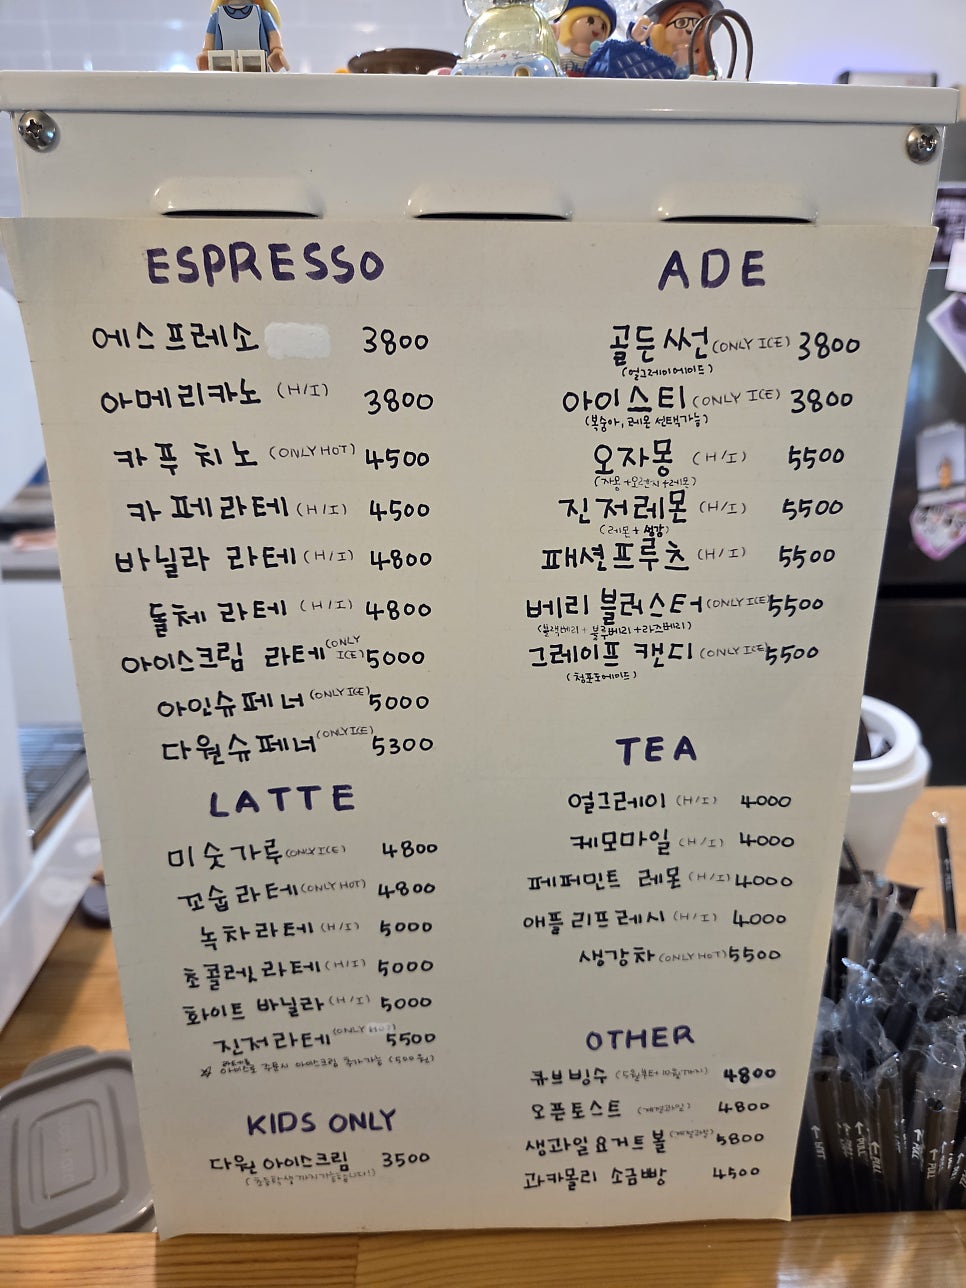 ESPRESSO
에스프레소 3800
아메리카노 (H/I) 3800
카푸치노 (ONLY HOT) 4500
카페라테 (H/I) 4500
바닐라 라테 (H/I) 4800
돌체 라테 (H/I) 4800
아이스크림 라테 (ONLY ICE) 5000
아인슈페너 (ONLY ICE) 5000
다원슈페너 (ONLY ICE) 5300
LATTE
미숫가루 (ONLY ICE) 4800
꼬숩라테 (ONLY HOT) 4800
녹차라테 (H/I) 5000
초콜렛라테 (H/I) 5000
화이트 바닐라 (H/I) 5000
진저라테 (ONLY HOT) 5500
☆ 라테를 아이스로 주문시 아이스크림 추가가능 (500원)
KIDS ONLY
다원 아이스크림 3500
(초등학생까지 가능합니다!)
ADE
골든 써언 (ONLY ICE) 3800
(얼그레이에이드)
아이스티 (ONLY ICE) 3800
(복숭아, 레몬 선택가능)
오자몽 (H/I) 5500
(자몽+오렌지+레몬)
진저레몬 (H/I) 5500
(레몬+생강)
패션프루츠 (H/I) 5500
베리 블러스터 (ONLY ICE) 5500
(블랙베리+블루베리+라즈베리)
그레이프 캔디 (ONLY ICE) 5500
(청포도에이드)
TEA
얼그레이 (H/I) 4000
케모마일 (H/I) 4000
페퍼민트 레몬 (H/I) 4000
애플 리프레시 (H/I) 4000
생강차 (ONLY HOT) 5500
OTHER
큐브빙수 (5월부터 10월까지) 4800
오픈토스트 (계절과일) 4800
생과일 요거트볼 (계절과일) 5800
과카몰리 소금빵 4500
PULL
PULL
PULL